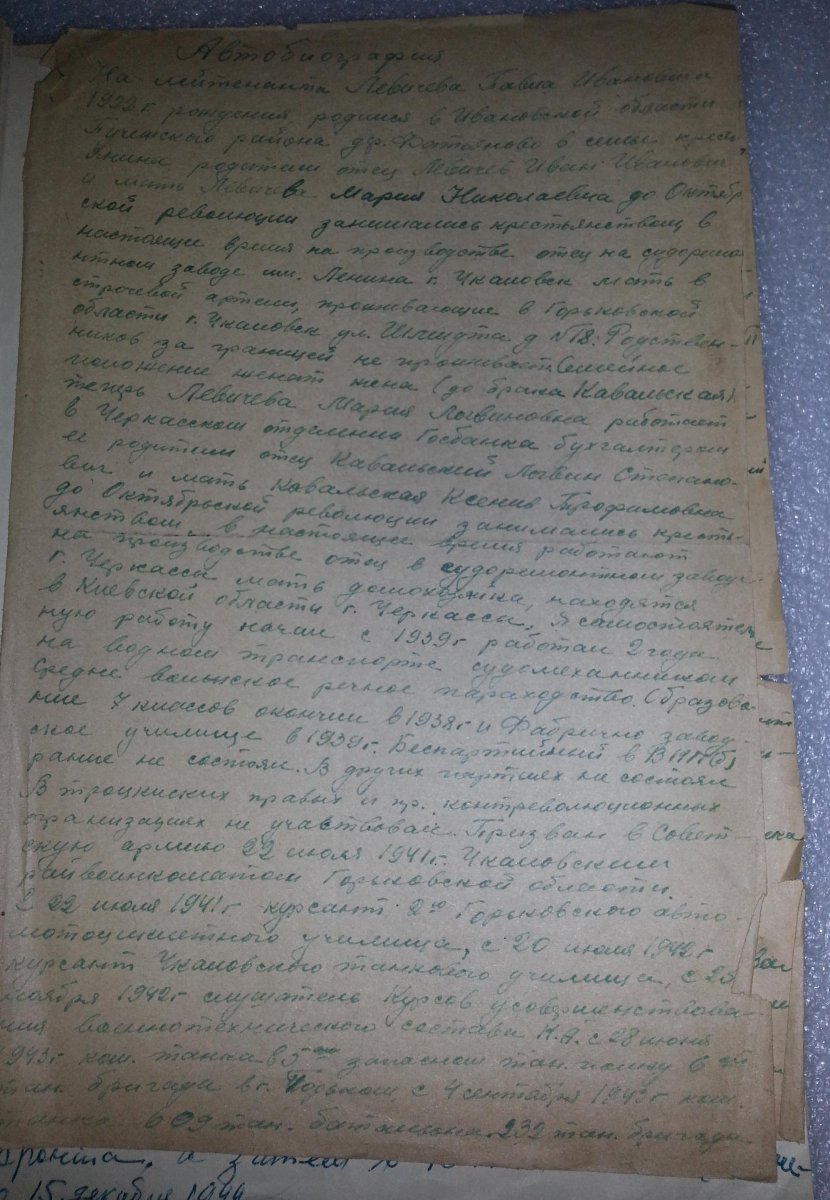 Автобиография
На лейтенанта Левичева Павла Ивановича
1922 г рождения, родился в Ивановской области
Пучежского района дер. Фатьяново в семье кресть
янина родители отец Левичев Иван Иванович
и мать Левичева Мария Николаевна до Октябр
ской революции занимались крестьянством в
настоящие время на производстве отец на судоремо
нтном заводе им. Ленина г. Чкаловск мать в
строчевой артели, проживающие в Горьковской
области г. Чкаловск ул. Шмидта д №18. Родствен-
ников за границей не проживает. Семейное
положение женат жена (до брака Кавальская)
теперь Левичева Мария Логвиновна работает
в Черкасском отделении Госбанка бухгалтером
ее родители отец Кавальский Логвин Степано-
вич и мать Кавальская Ксения Трофимовна
до Октябрьской революции занимались кресть-
янством, в настоящие время работают
на производстве отец в судоремонтном заводе
г. Черкассы мать домохозяйка, находятся
в Киевской области г. Черкассы. Я самостоятель
ную работу начал с 1939г работал 2 года
на водном транспорте судомехаником
Средне волжское речное пароходство. Образова-
ние 7 классов окончил в 1938г и Фабрично завод-
ское училище в 1939г. Беспартийный в ВКП(б)
ранние не состоял. В других партиях не состоял
В троцкиских правых и пр. контреволюционных
организациях не участвовал. Призван в Совет-
скую армию 22 июля 1941г. Чкаловским
райвоинкоматом Горьковской области.
С 22 июля 1941г курсант 2го Горьковского авто-
мотоциклетного училища, с 20 июля 1942г
курсант Чкаловского танкового училища, с 20
ноября 1942г слушатель Курсов усовершенствова-
ния военнотехнического состава К.А. с 28 июня
1943г ком. танка в 5ом запасном тан. полку 6ой
тан. бригада в г. с 4 сентября 1943г ком.
танка в 09 тан. баталиона 232 тан. бригада
фронта, а затем
15 декабря 1944